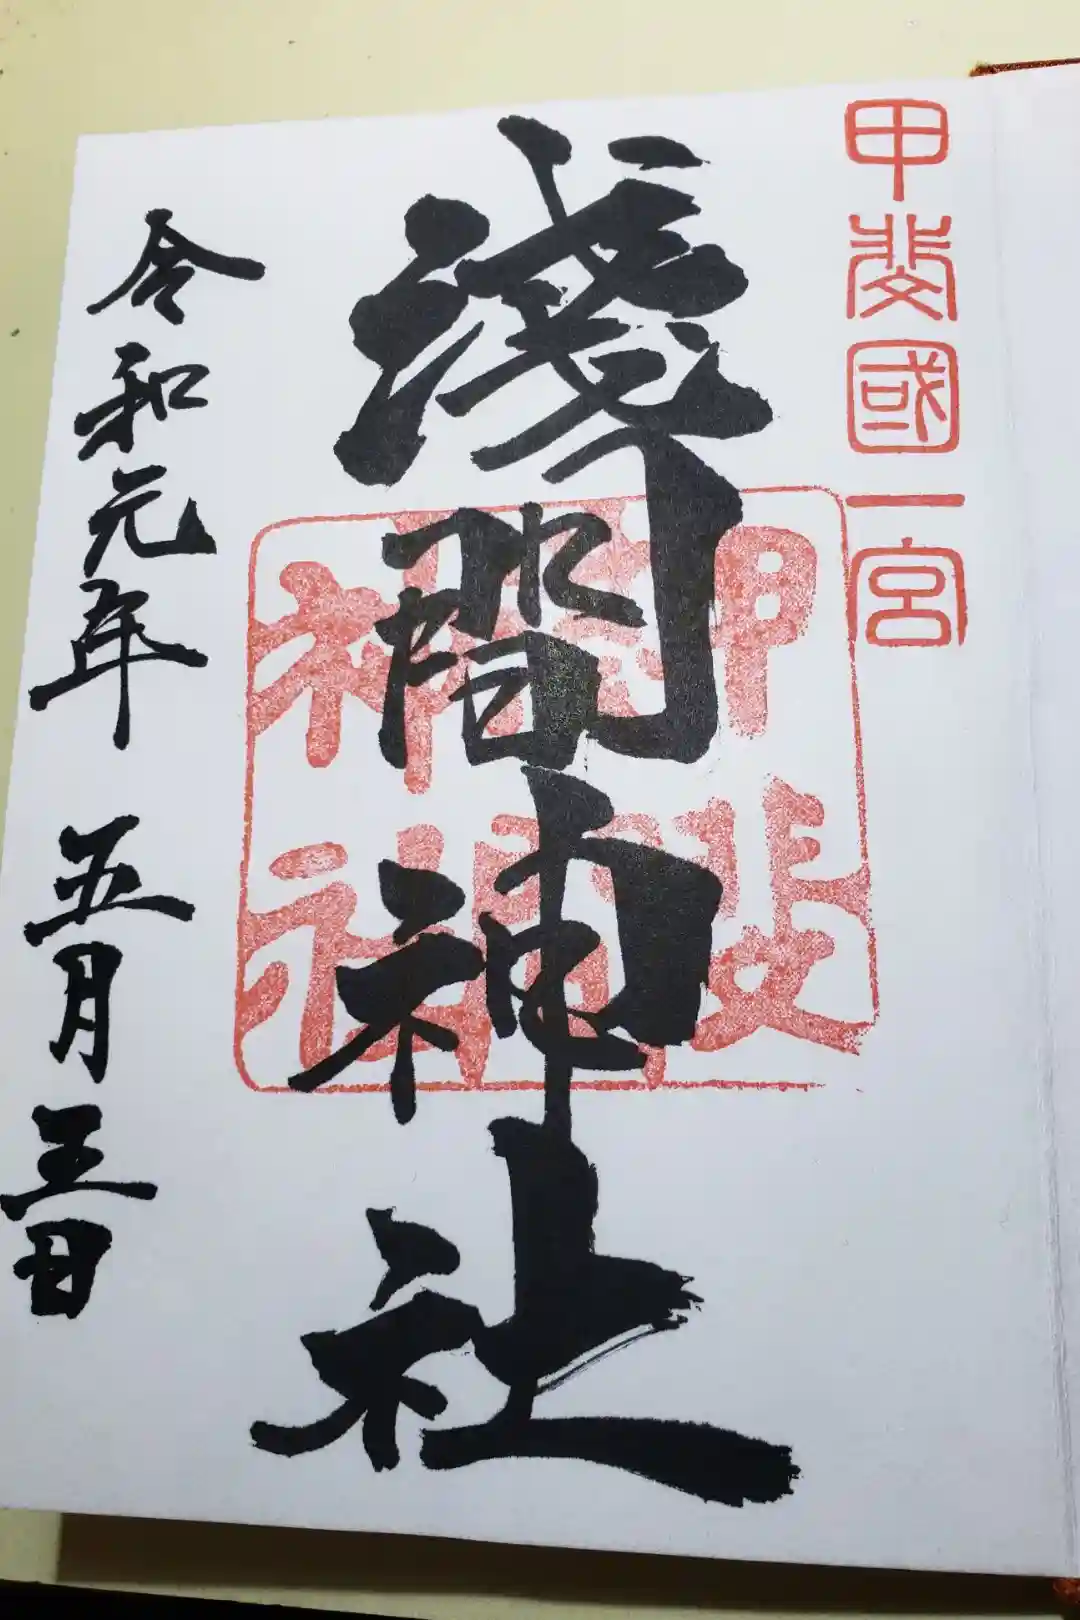 甲斐國一宮
淺間神社
甲斐
神社
令和元年 五月三日